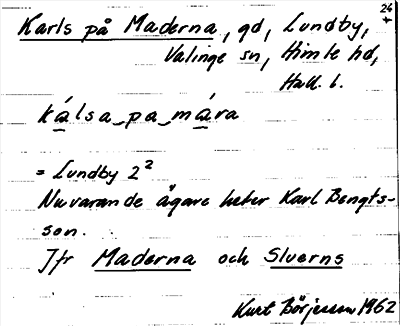 24
Karls på Maderna, gd, Lundby,
Valinge sn, Himle hd,
Hall. l.
kálsa_pa_mára
= Lundby 2²
Nuvarande ägare heter Karl Bengts-
son.
Jfr Maderna och Sluerns
Kurt Börjesson 1962